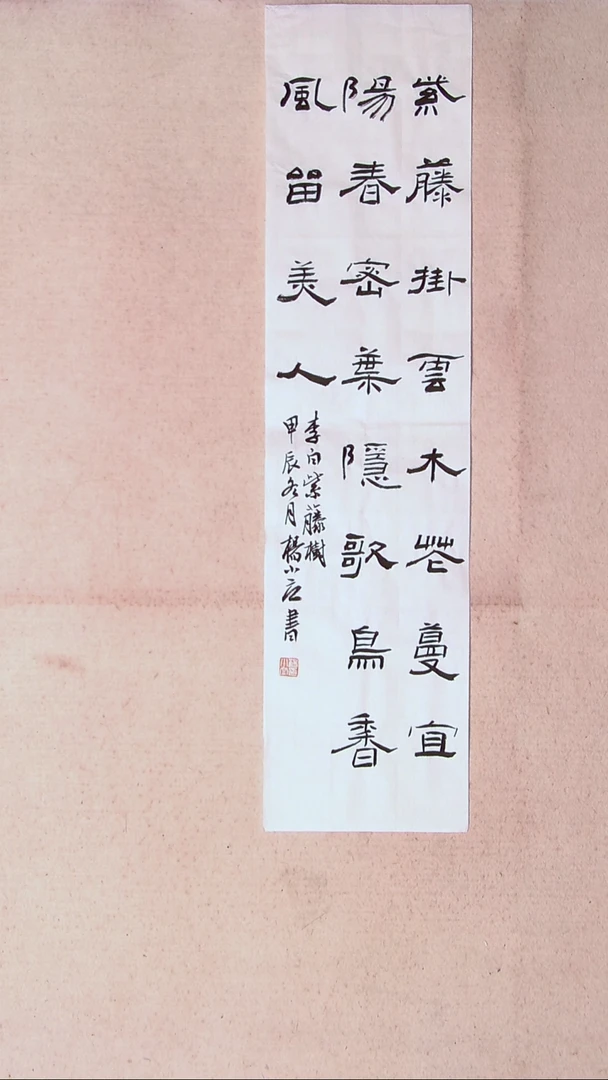 紫藤掛雲木花蔓宜
陽春密葉隱歌鳥香
風留美人
李白紫藤樹
甲辰冬月楊小
書